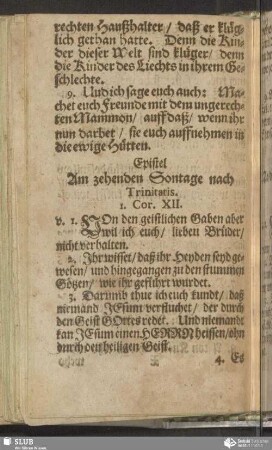 rechten Haußhalter / daß er klüg-
lich gethan hatte. Denn die Kin-
der dieser Welt sind klüger / denn
die Kinder des Liechts in ihrem Ge-
schlechte.
9. Und ich sage euch auch: Ma-
chet euch Freunde mit dem ungerech-
ten Mammon / auff daß / wenn ihr
nun darbet / sie euch auffnehmen in
die ewige Hütten.
Epistel
Am zehenden Sontage nach
Trinitatis.
1. Cor. XII.
v. 1. VOn den geistlichen Gaben aber
wil ich euch / lieben Brüder /
nicht verhalten.
2. Ihr wisset / daß ihr Heyden seyd ge-
wesen / und hingegangen zu den stummen
Götzen / wie ihr geführt wurdet.
3. Darumb thue ich euch kundt / daß
niemand JEsum verfluchet / der durch
den Geist GOttes redet: Und niemandt
kan JEsum einen HERRN heissen / ohn
durch den heiligen Geist.
4. Es
SLUB